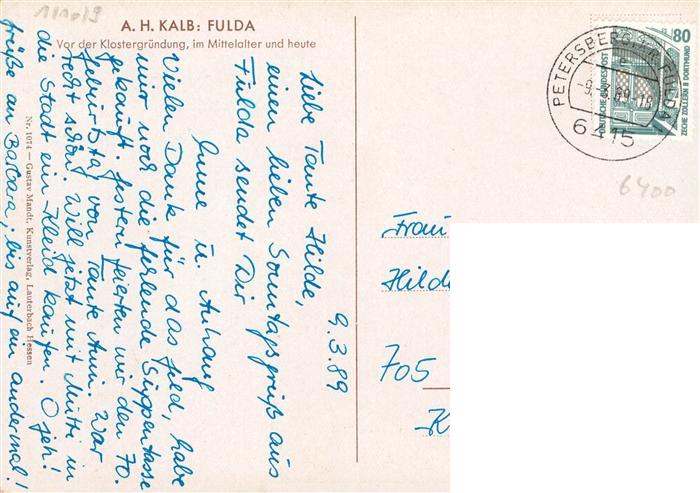 111019
A. H. KALB: FULDA
Vor der Klostergründung, im Mittelalter und heute
9.3.89
Liebe Tante Hilde,
einen lieben Sonntagsgruß aus
Fulda sendet Dir
Anne u. Anhang
Vielen Dank für das Geld, habe
mir noch die fehlende Suppentasse
gekauft. Gestern feierten wir den 70.
Geburtstag von Tante Anni. War
recht schön. Will jetzt mit Mutti in
die Stadt ein Kleid kaufen. O jeh!
Grüße an Barbara, bis auf ein andermal!
Nr. 1074 — Gustav Mandt, Kunstverlag, Lauterbach Hessen
80
DEUTSCHE BUNDESPOST
ZECHE ZOLLERN II DORTMUND
PETERSBERG, KR FULDA
89-18
6415
6400
Frau
Hild
705
K